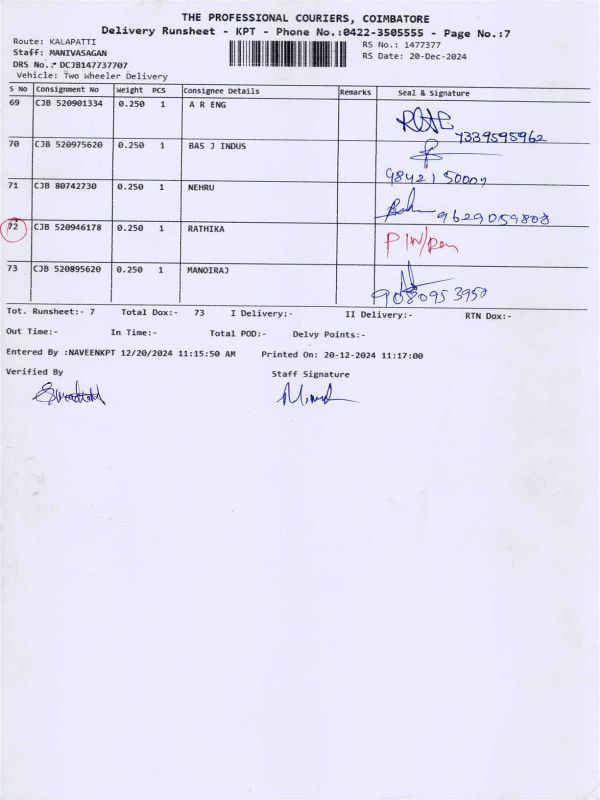 THE PROFESSIONAL COURIERS, COIMBATORE
Delivery Runsheet - KPT - Phone No.:0422-3505555 - Page No.:7
Route: KALAPATTI
RS No.: 1477377
Staff: MANIVASAGAN
RS Date: 20-Dec-2024
DRS No.:* DCJB147737707
Vehicle: Two Wheeler Delivery
S No Consignment No Weight PCS Consignee Details Remarks Seal & Signature
69 CJB 520901334 0.250 1 A R ENG
7339595962
70 CJB 520975620 0.250 1 BAS J INDUS
71 CJB 80742730 0.250 1 NEHRU
9629059808
72 CJB 520946178 0.250 1 RATHIKA
73 CJB 520895620 0.250 1 MANOIRAJ
9080953950
Tot. Runsheet:- 7 Total Dox:- 73 I Delivery:- II Delivery:- RTN Dox:-
Out Time:- In Time:- Total POD:- Delvy Points:-
Entered By :NAVEENKPT 12/20/2024 11:15:50 AM Printed On: 20-12-2024 11:17:00
Verified By Staff Signature